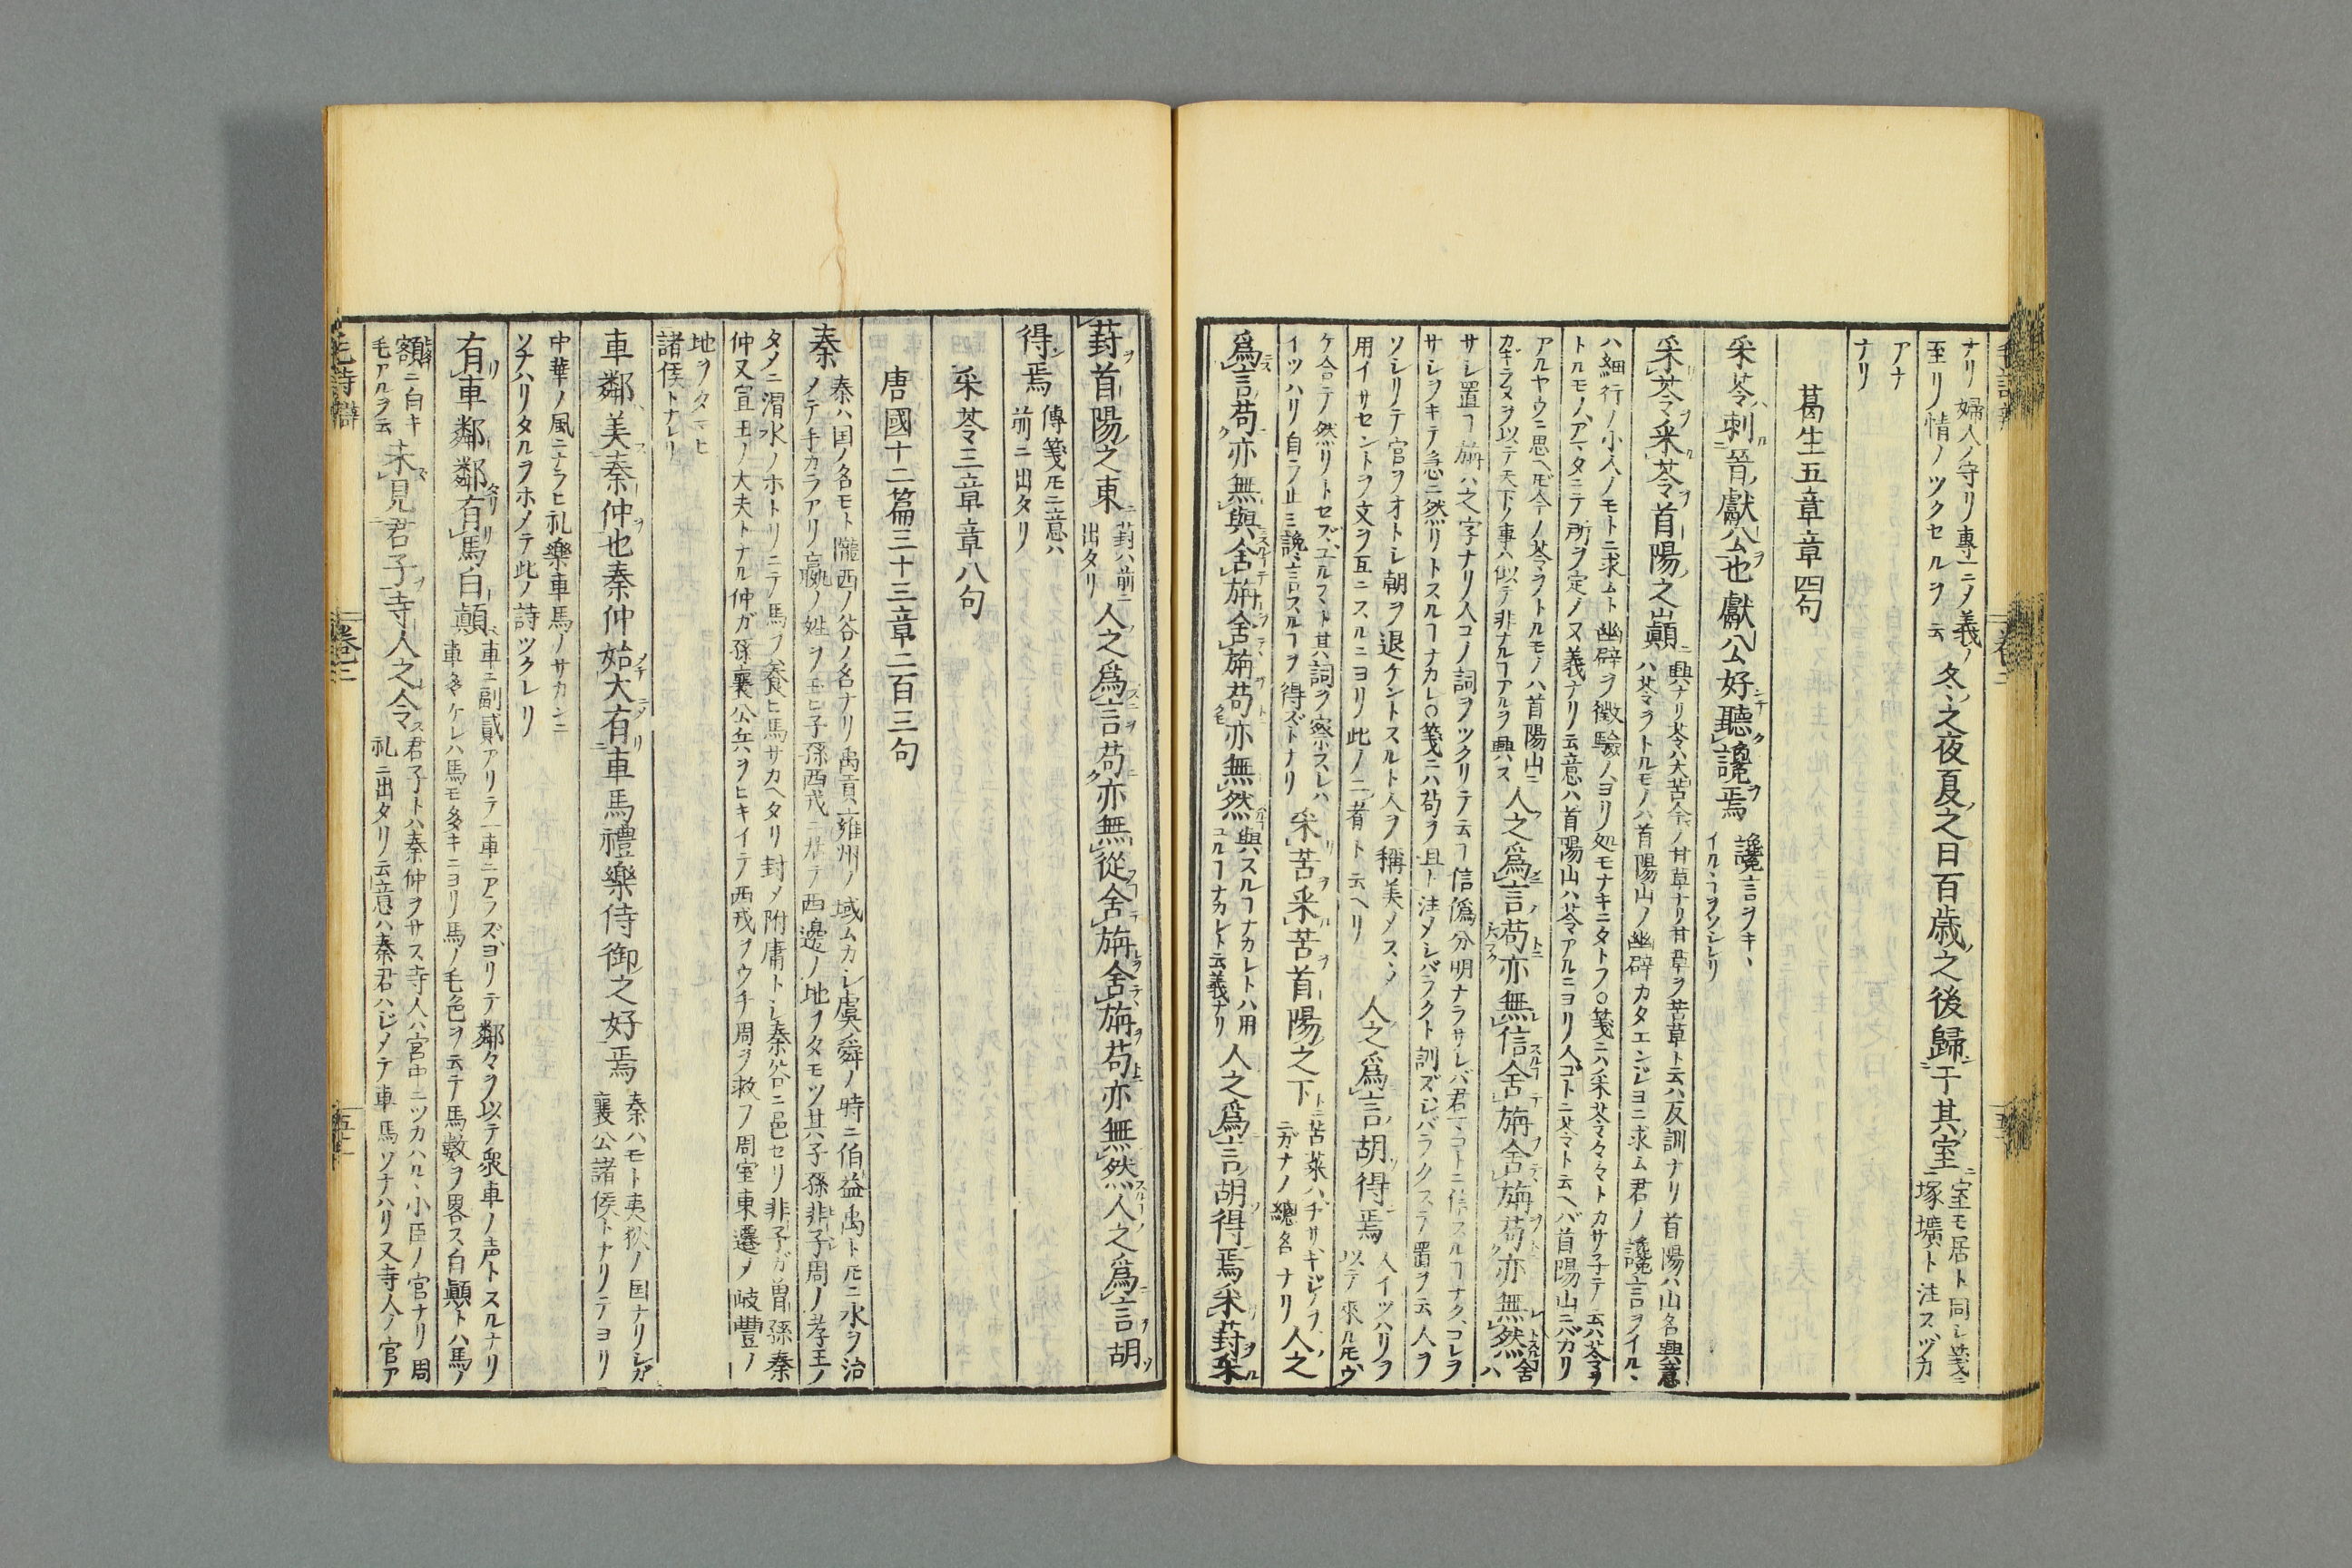 ナリ婦人ノ守リ專一ニノ義ノ
至リ情ノツクセルヲ云
冬之夜夏之日百歳之後歸于其室
室モ居ト同シ箋ニ
塚壙ト注スツカ
アナ
ナリ
葛生五章章四句
采苓刺晉獻公也獻公好聽讒焉
讒言ヲキヽ
イルヽヲソシレリ
采苓采苓首陽之巓
興ナリ苓ハ大苦今ノ甘草ナリ甘草ヲ苦草ト云ハ反訓ナリ首陽ハ山名興意
ハ苓ヲトルモノハ首陽山ノ幽辟カタエンジヨニ求ム君ノ讒言ヲイルヽ
ハ細行ノ小人ノモトニ求ムト幽辟ヲ徴驗ノヨリ処モナキニタトフ○箋ニハ采苓々々トカサ子テ云ハ苓ヲ
トルモノハアマタニテ所ヲ定メヌ義ナリ云意ハ首陽山ハ苓アルニヨリ人コトニ苓ト云ヘバ首陽山ニバカリ
アルヤウニ思ヘ𪜈今ノ苓ヲトルモノハ首陽山ニ
カギラヌヲ以テ天下ノ事ハ似テ非ナルヿアルヲ興ス
人之爲言苟亦無信舍旃舍旃苟亦無然
舍ハ
サシ置ヿ旃ハ之字ナリ人コノ詞ヲツクリテ云ヿ信僞分明ナラサレバ君マコトニ信スルヿナクコレヲ
サシヲキテ急ニ然リトスルヿナカレ○箋ニハ苟ヲ且ト注メシバラクト訓ズシバラクステ置ヲ云人ヲ
ソシリテ官ヲオトシ朝ヲ退ケントスルト人ヲ稱美メスヽ
用イサセントヲ文ヲ互ニスルニヨリ此ノ二者ト云ヘリ
人之爲言胡得焉
人イツハリヲ
以テ來ル𪜈ウ
ケ合テ然リトセズユルスト其詞ヲ察スレハ
イツハリ自ラ止ミ讒言スルヿヲ得ズトナリ
采苦采苦首陽之下
苦菜ハチサキジノヲ
ニガナノ總名ナリ
人之
爲言苟亦無與舍旃舍旃苟亦無然
與スルヿナカレトハ用
ユルヿナカレト云義ナリ
人之爲言胡得焉采葑采
葑首陽之東
葑ハ前ニ
出タリ
人之爲言苟亦無從舍旃舍旃苟亦無然人之爲言胡
得焉
傳箋𪜈ニ意ハ
前ニ出タリ
采苓三章章八句
唐國十二篇三十三章二百三句
秦
秦ハ国ノ名モト隴西ノ谷ノ名ナリ禹貢ノ雍州ノ域ムカシ虞舜ノ時ニ伯益禹ト𪜈ニ水ヲ治
メテ手カラアリ嬴ノ姓ヲ玉ヒ子孫西戎ニ居テ西邊ノ地ヲタモツ其子孫非子周ノ孝王ノ
タメニ渭水ノホトリニテ馬ヲ養ヒ馬サカヘタリ封メ附庸トシ秦谷ニ邑セリ非子ガ曽孫秦
仲又宣王ノ大夫トナル仲ガ孫襄公兵ヲヒキイテ西戎ヲウチ周ヲ救フ周室東遷メ岐豐ノ
地ヲタマヒ
諸侯トナレリ
車鄰美秦仲也秦仲始大有車馬禮樂侍御之好焉
秦ハモト夷狄ノ国ナリシガ
襄公諸侯トナリテヨリ
中華ノ風ニナラヒ礼樂車馬ノサカンニ
ソナハリタルヲホメテ此ノ詩ツクレリ
有車鄰鄰有馬白顚
車ニ副貳アリテ一車ニアラズヨリテ鄰々ヲ以テ衆車ノ声トスルナリ
車多ケレハ馬モ多キニヨリ馬ノ毛色ヲ云テ馬數ヲ畧ス白顚トハ馬ノ
額ニ白キ
毛アルヲ云
未見君子寺人之令
君子トハ秦仲ヲサス寺人ハ宮中ニツカハルヽ小臣ノ官ナリ周
礼ニ出タリ云意ハ秦君ハジメテ車馬ソナハリ又寺人ノ官ア
毛詩辯
卷三